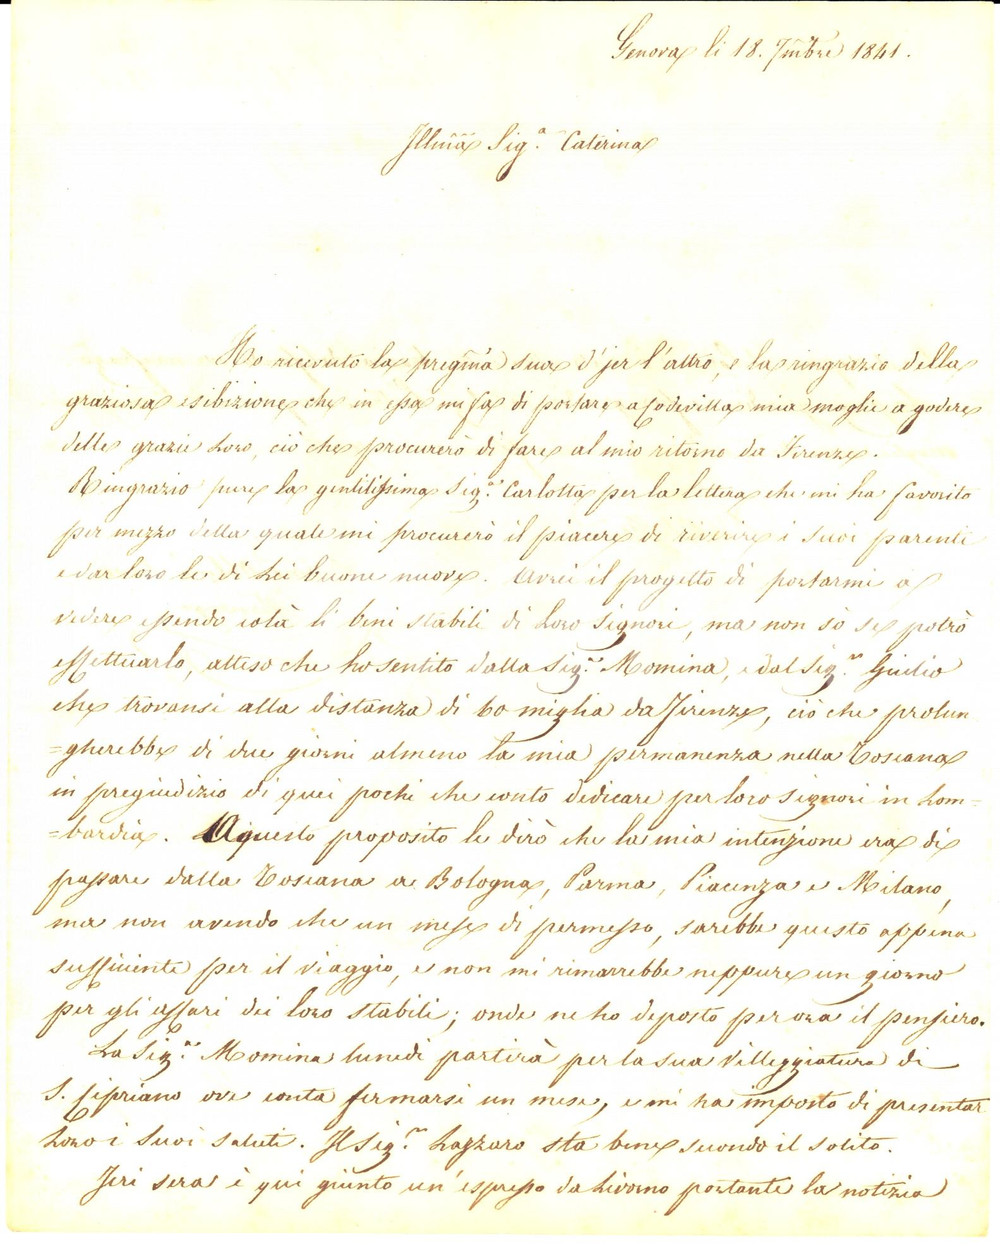 Genova li 18. 7mbre 1841.
Illma Sig.a Caterina
Ho ricevuto la pregma sua d'jer l'altro, e la ringrazio della
graziosa esibizione che in essa mi fa di portare a Codevilla mia moglie a godere
delle grazie Loro, ciò che procurerò di fare al mio ritorno da Firenze.
Ringrazio pure la gentilissima Sig.a Carlotta per la lettera che mi ha favorito
per mezzo della quale mi procurerò il piacere di riverire i suoi parenti
e dar loro le di Lei buone nuove. Avrei il progetto di portarmi a
vedere essendo colà li beni stabili di Loro Signori, ma non sò se potrò
effettuarlo, atteso che ho sentito dalla Sig.ra Momina, e dal Sig.r Giulio
che trovansi alla distanza di 60 miglia da Firenze, ciò che prolun
=gherebbe di due giorni almeno la mia permanenza nella Toscana
in pregiudizio di quei pochi che conto dedicare per loro Signori in Lom=
=bardia. A questo proposito le dirò che la mia intenzione era di
passare dalla Toscana a Bologna, Parma, Piacenza e Milano,
ma non avendo che un mese di permesso, sarebbe questo appena
sufficiente per il viaggio, e non mi rimarrebbe neppure un giorno
per gli affari dei loro stabili; onde ne ho deposto per ora il pensiero.
La Sig.ra Momina lunedì partirà per la sua villeggiatura di
S. Cipriano ove conta fermarsi un mese, e mi ha imposto di presentar
Loro i suoi saluti. Il Sig.r Lazzaro sta bene secondo il solito.
Jeri sera è qui giunto un'espresso da Livorno portante la notizia